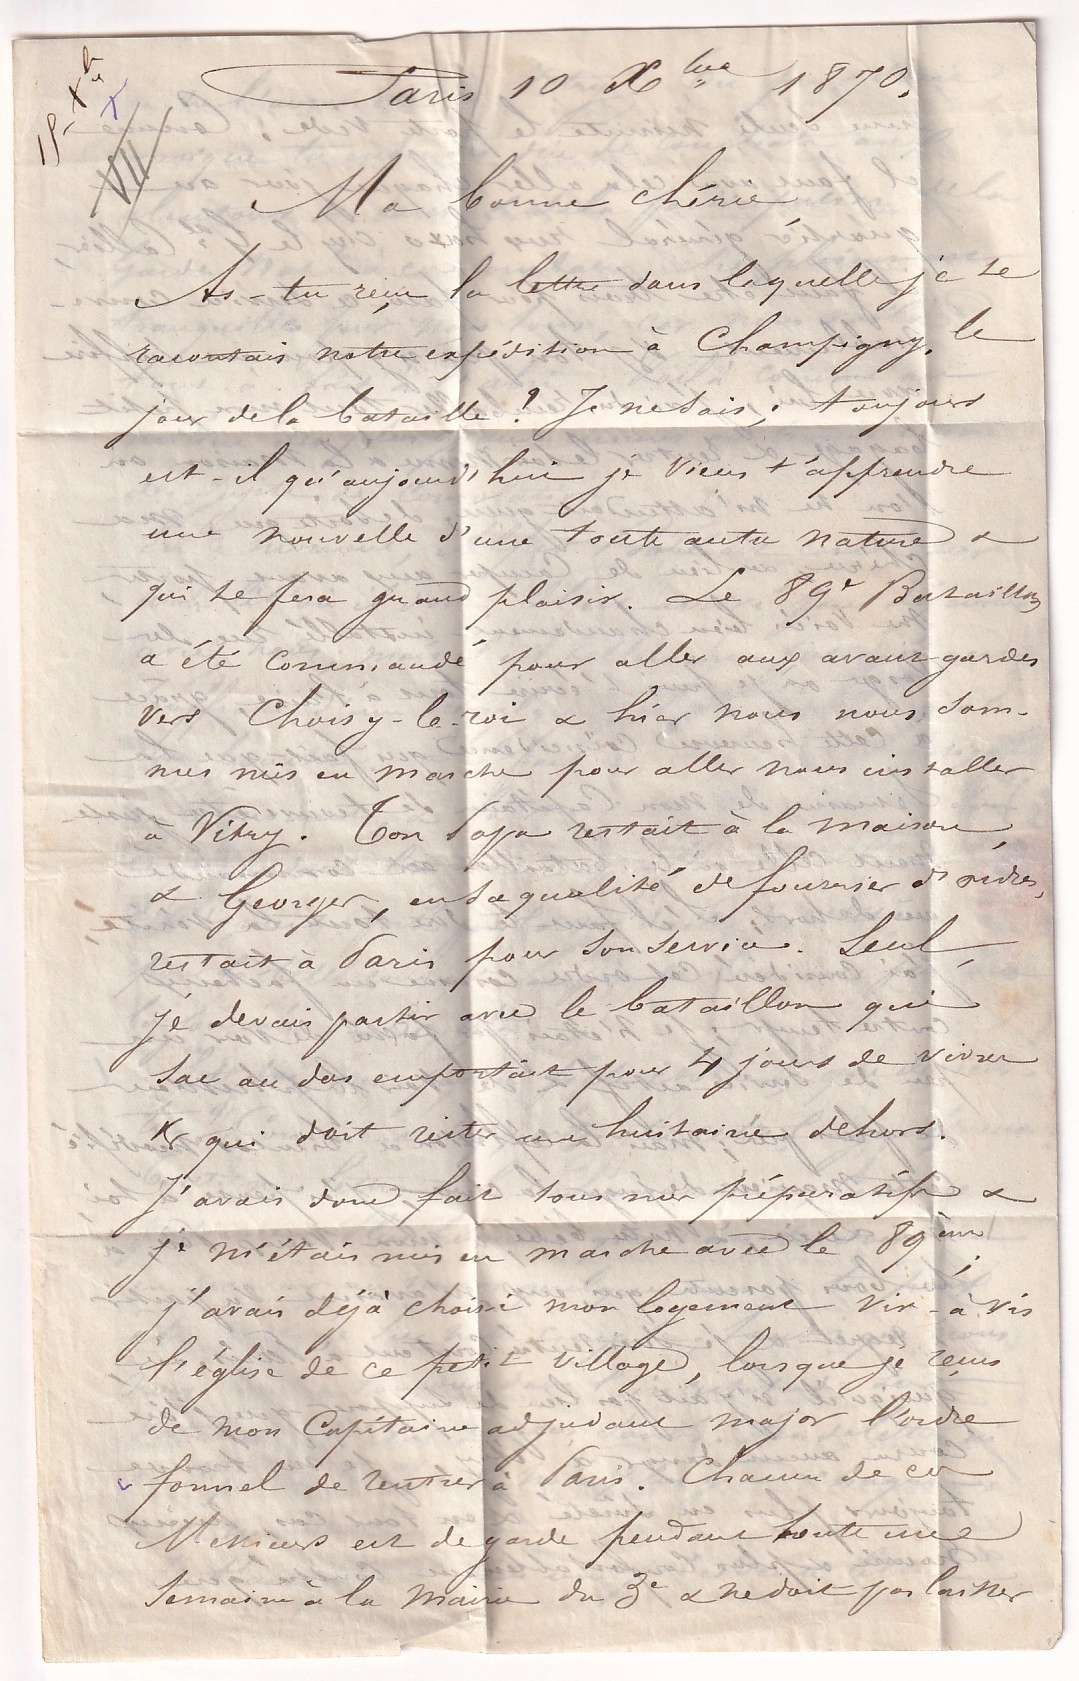 Paris 10 Xbre 1870.
VII
Ma bonne chérie
As-tu reçu la lettre dans laquelle je te
racontais notre expédition à Champigny, le
jour de la bataille ? Je ne sais ; toujours
est-il qu'aujourd'hui je viens t'apprendre
une nouvelle d'une toute autre nature &
qui te fera grand plaisir. Le 89e Bataillon
a été commandé pour aller aux avant gardes
vers Choisy-le-roi & hier nous nous som-
mes mis en marche pour aller nous installer
à Vitry. Ton Papa restait à la maison
& Georges, en sa qualité de fourrier d'ordres,
restait à Paris pour son service. Seul,
je devais partir avec le bataillon qui
sac au dos emportait pour 4 jours de vivres
& qui doit rester une huitaine dehors.
J'avais donc fait tous mes préparatifs &
je m'étais mis en marche avec le 89ème ;
j'avais déjà choisi mon logement vis-à vis
l'église de ce petit village, lorsque je reçus
de mon Capitaine adjudant major l'ordre
formel de rentrer à Paris. Chacun de ces
Messieurs est de garde pendant toute une
semaine à la mairie du 3e & ne doit pas laisser